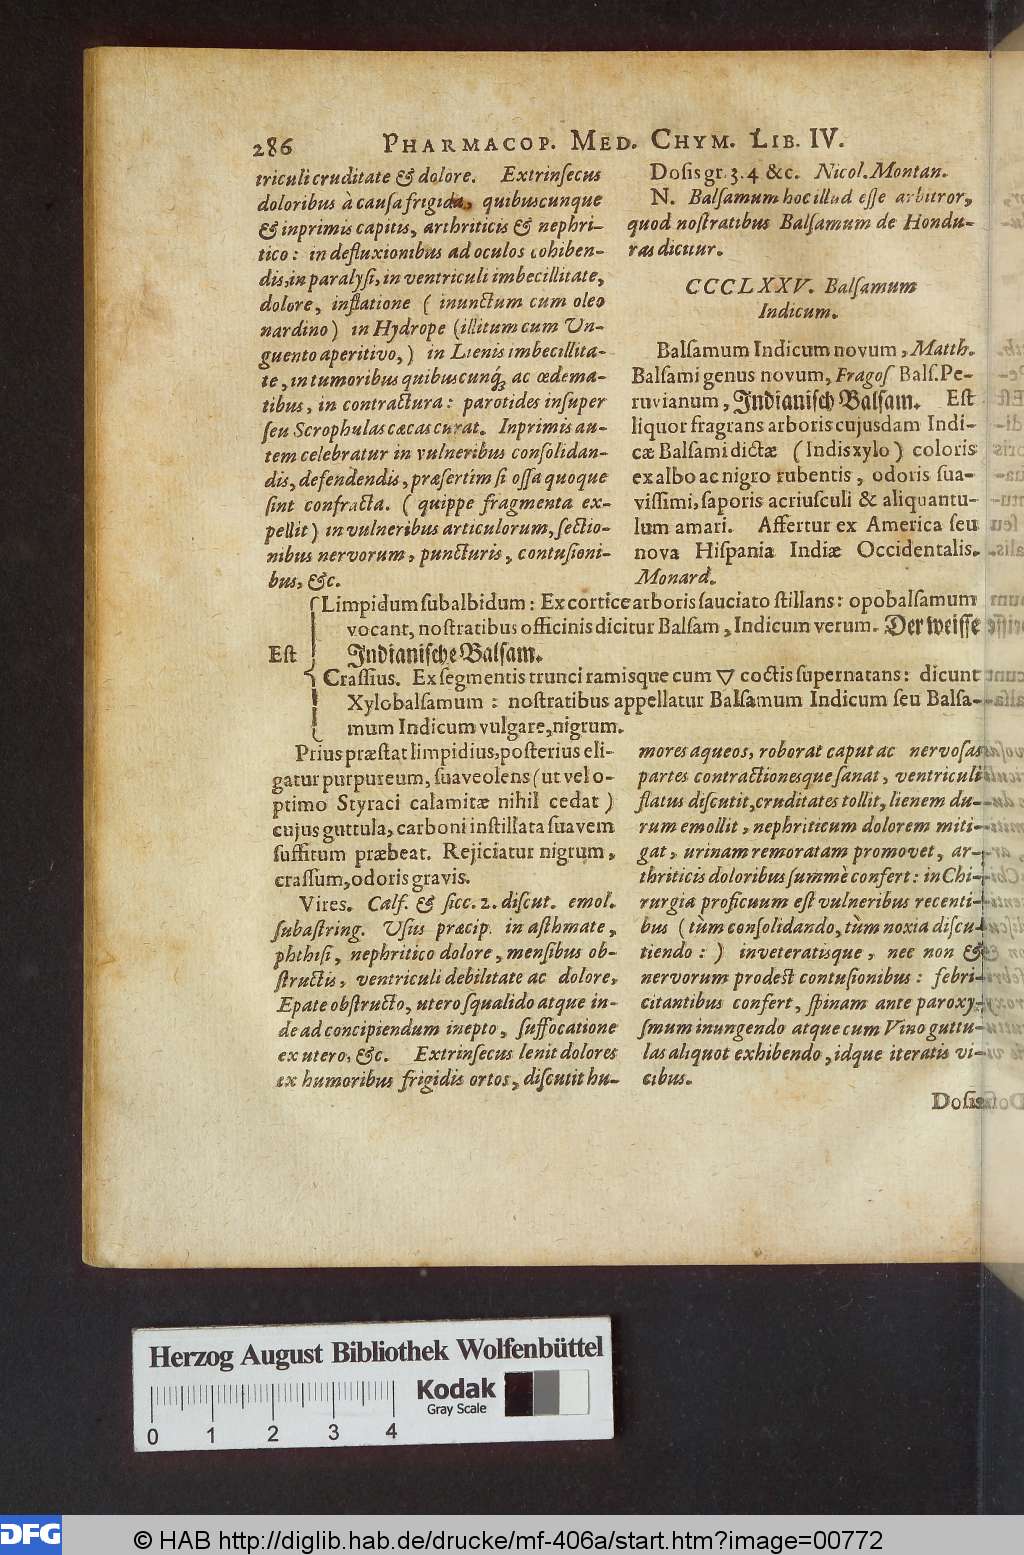 286 PHARMACOP. MED. CHYM. LIB. IV.
triculi cruditate & dolore. Extrinſecus
doloribus à cauſa frigida, quibuscunque
& inprimis capitis, arthriticis & nephri-
tico: in defluxionibus ad oculos cohiben-
dis, in paralyſi, in ventriculi imbecillitate,
dolore, inflatione ( inunctum cum oleo
nardino) in Hydrope (illitum cum Un-
guento aperitivo,) in Lienis imbecillita-
te, in tumoribus quibuscunq́ꝫ ac œdema-
tibus, in contractura: parotides inſuper
ſeu Scrophulas cæcas curat. Inprimis au-
tem celebratur in vulneribus conſolidan-
dis, defendendis, præſertim ſi oſſa quoque
ſint confracta. ( quippe fragmenta ex-
pellit) in vulneribus articulorum, ſectio-
nibus nervorum, puncturis, contuſioni-
bus, &c.
Doſis gr. 3. 4 &c. Nicol. Montan.
N. Balſamum hoc illud eſſe arbitror,
quod noſtratibus Balſamum de Hondu-
ras dicitur.
CCCCLXXV. Balſamum
Indicum.
Balſamum Indicum novum, Matth.
Balſami genus novum, Fragoſ Balſ. Pe-
ruvianum, Indianiſch Balſam. Eſt
liquor fragrans arboris cujusdam Indi-
cæ Balſami dictæ (Indis xylo) coloris
ex albo ac nigro rubentis, odoris ſua-
viſſimi, ſaporis acriuſculi & aliquantu-
lum amari. Affertur ex America ſeu
nova Hiſpania Indiæ Occidentalis.
Monard.
Eſt
Limpidum ſubalbidum: Ex cortice arboris ſauciato ſtillans: opobalſamum
vocant, noſtratibus officinis dicitur Balſam, Indicum verum. Der weiſſe
Indianiſche Balſam.
Craſſius. Ex ſegmentis trunci ramisque cum ▽ coctis ſupernatans: dicunt
Xylobalſamum : noſtratibus appellatur Balſamum Indicum ſeu Balſa-
mum Indicum vulgare, nigrum.
Prius præſtat limpidius, poſterius eli-
gatur purpureum, ſuaveolens (ut vel o-
ptimo Styraci calamitæ nihil cedat)
cujus guttula, carboni inſtillata ſuavem
ſuffitum præbeat. Rejiciatur nigrum,
craſſum, odoris gravis.
Vires. Calf. & ſicc. 2. diſcut. emol.
ſubaſtring. Uſus præcip. in aſthmate,
phthiſi, nephritico dolore, menſibus ob-
ſtructis, ventriculi debilitate ac dolore,
Epate obſtructo, utero ſqualido atque in-
de ad concipiendum inepto, ſuffocatione
ex utero, &c. Extrinſecus lenit dolores
ex humoribus frigidis ortos, diſcutit hu-
mores aqueos, roborat caput ac nervoſas
partes contractionesque ſanat, ventriculi
flatus diſcutit, cruditates tollit, lienem du-
rum emollit, nephriticum dolorem miti-
gat, urinam remoratam promovet, ar-
thriticis doloribus ſummè confert: in Chi-
rurgia proficuum eſt vulneribus recenti-
bus (tùm conſolidando, tùm noxia diſcu-
tiendo:) inveteratisque, nec non &
nervorum prodeſt contuſionibus: febri-
citantibus confert, ſpinam ante paroxy-
ſmum inungendo atque cum Vino guttu-
las aliquot exhibendo, idque iteratis vi-
cibus.
Doſis
Herzog August Bibliothek Wolfenbüttel
0 1 2 3 4
Kodak
Gray Scale
DFG
© HAB http://diglib.hab.de/drucke/mf-406a/start.htm?image=00772